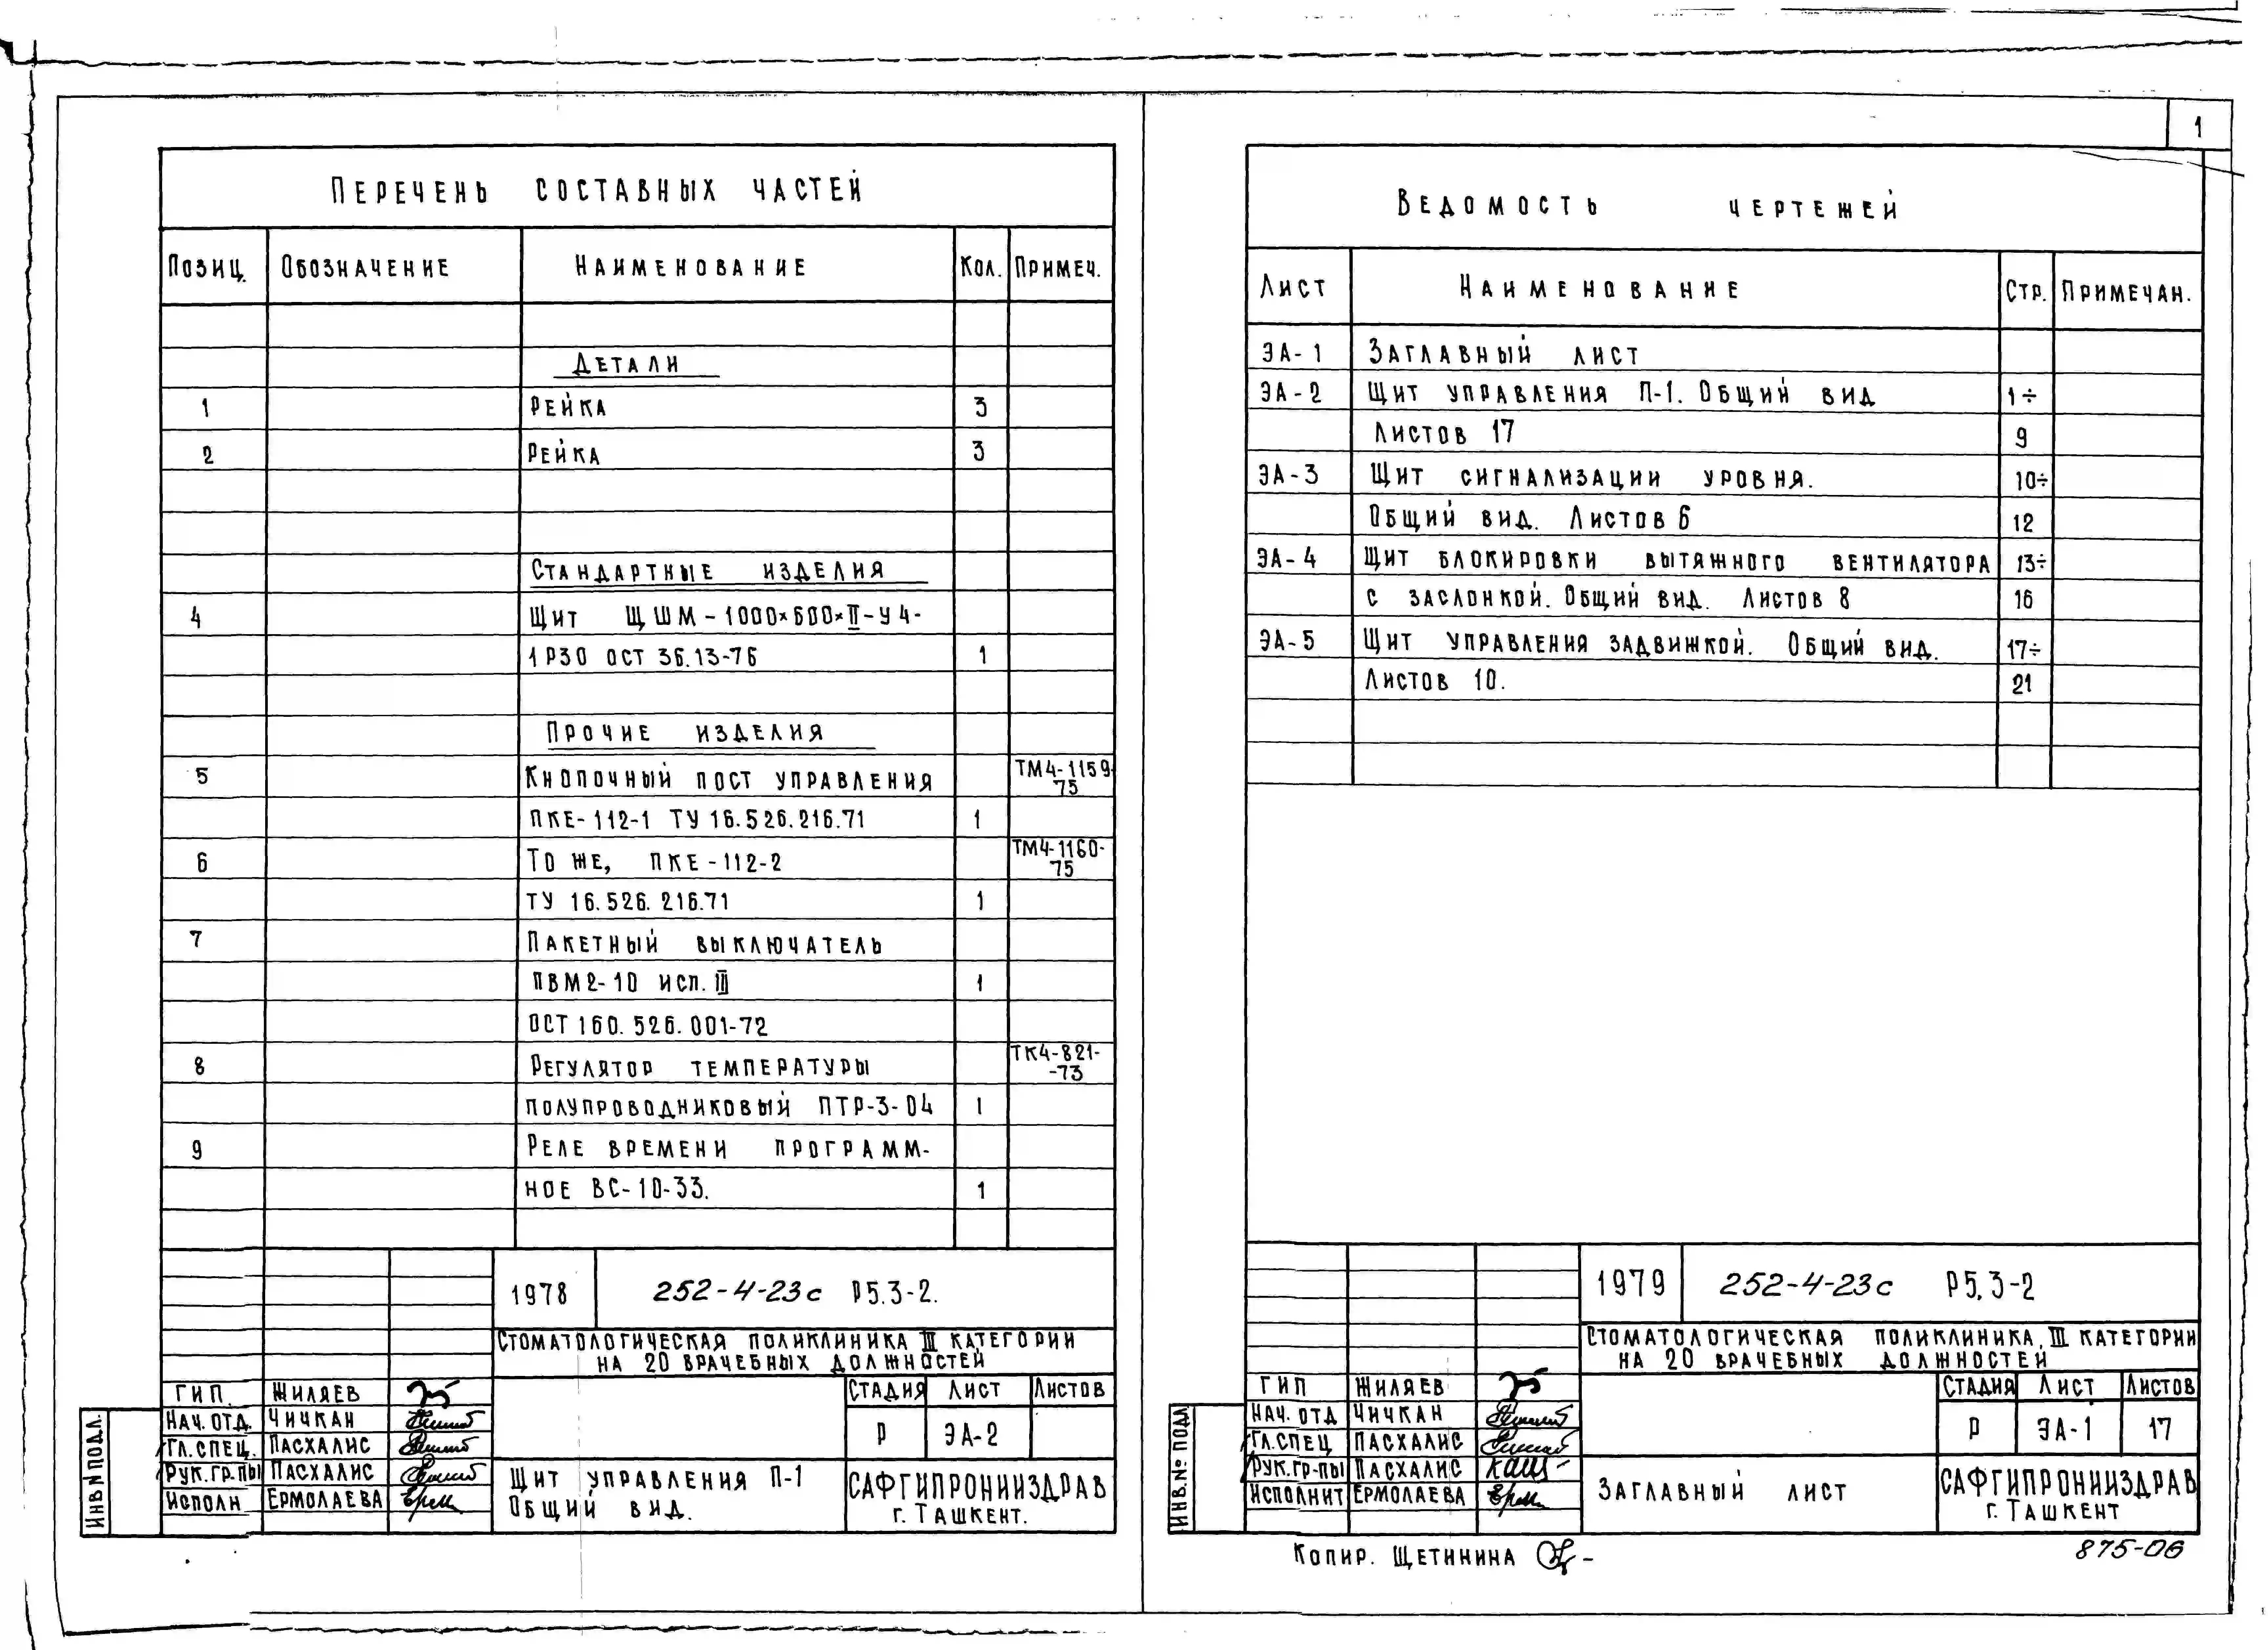 1
Перечень составных частей
Позиц. Обозначение Наименование Кол. Примеч.
Детали
1 Рейка 3
2 Рейка 3
Стандартные изделия
4 Щит ЩШМ-1000×600×II-У4-
1Р30 ОСТ 36.13-76 1
Прочие изделия
5 Кнопочный пост управления ТМ4-1159-75
ПКЕ-112-1 ТУ 16.526.216.71 1
6 То же, ПКЕ-112-2 ТМ4-1160-75
ТУ 16.526.216.71 1
7 Пакетный выключатель
ПВМ2-10 исп. III 1
ОСТ 160.526.001-72
8 Регулятор температуры ТК4-821-
-73
полупроводниковый ПТР-3-04 1
9 Реле времени программ-
ное ВС-10-33. 1
1978 252-4-23с Р5.3-2.
Стоматологическая поликлиника III категории
на 20 врачебных должностей
ГИП. Жиляев
Нач. отд. Чичкан
Гл. спец. Пасхалис
Рук. гр-пы Пасхалис
Исполн Ермолаева
Стадия Лист Листов
Р ЭА-2
Щит управления П-1
Общий вид.
САФГИПРОНИИЗДРАВ
г. Ташкент.
Инв N подл.
Ведомость чертежей
Лист Наименование Стр. Примечан.
ЭА-1 Заглавный лист
ЭА-2 Щит управления П-1. Общий вид 1÷
Листов 17 9
ЭА-3 Щит сигнализации уровня. 10÷
Общий вид. Листов 6 12
ЭА-4 Щит блокировки вытяжного вентилятора 13÷
с заслонкой. Общий вид. Листов 8 16
ЭА-5 Щит управления задвижкой. Общий вид. 17÷
Листов 10. 21
1979 252-4-23с Р5.3-2
Стоматологическая поликлиника, III категории
на 20 врачебных должностей
ГИП Жиляев
Нач. отд Чичкан
Гл. спец Пасхалис
Рук. гр-пы Пасхалис
Исполнит Ермолаева
Стадия Лист Листов
Р ЭА-1 17
Заглавный лист
САФГИПРОНИИЗДРАВ
г. Ташкент
Инв. № подл
Копир. Щетинина
875-06